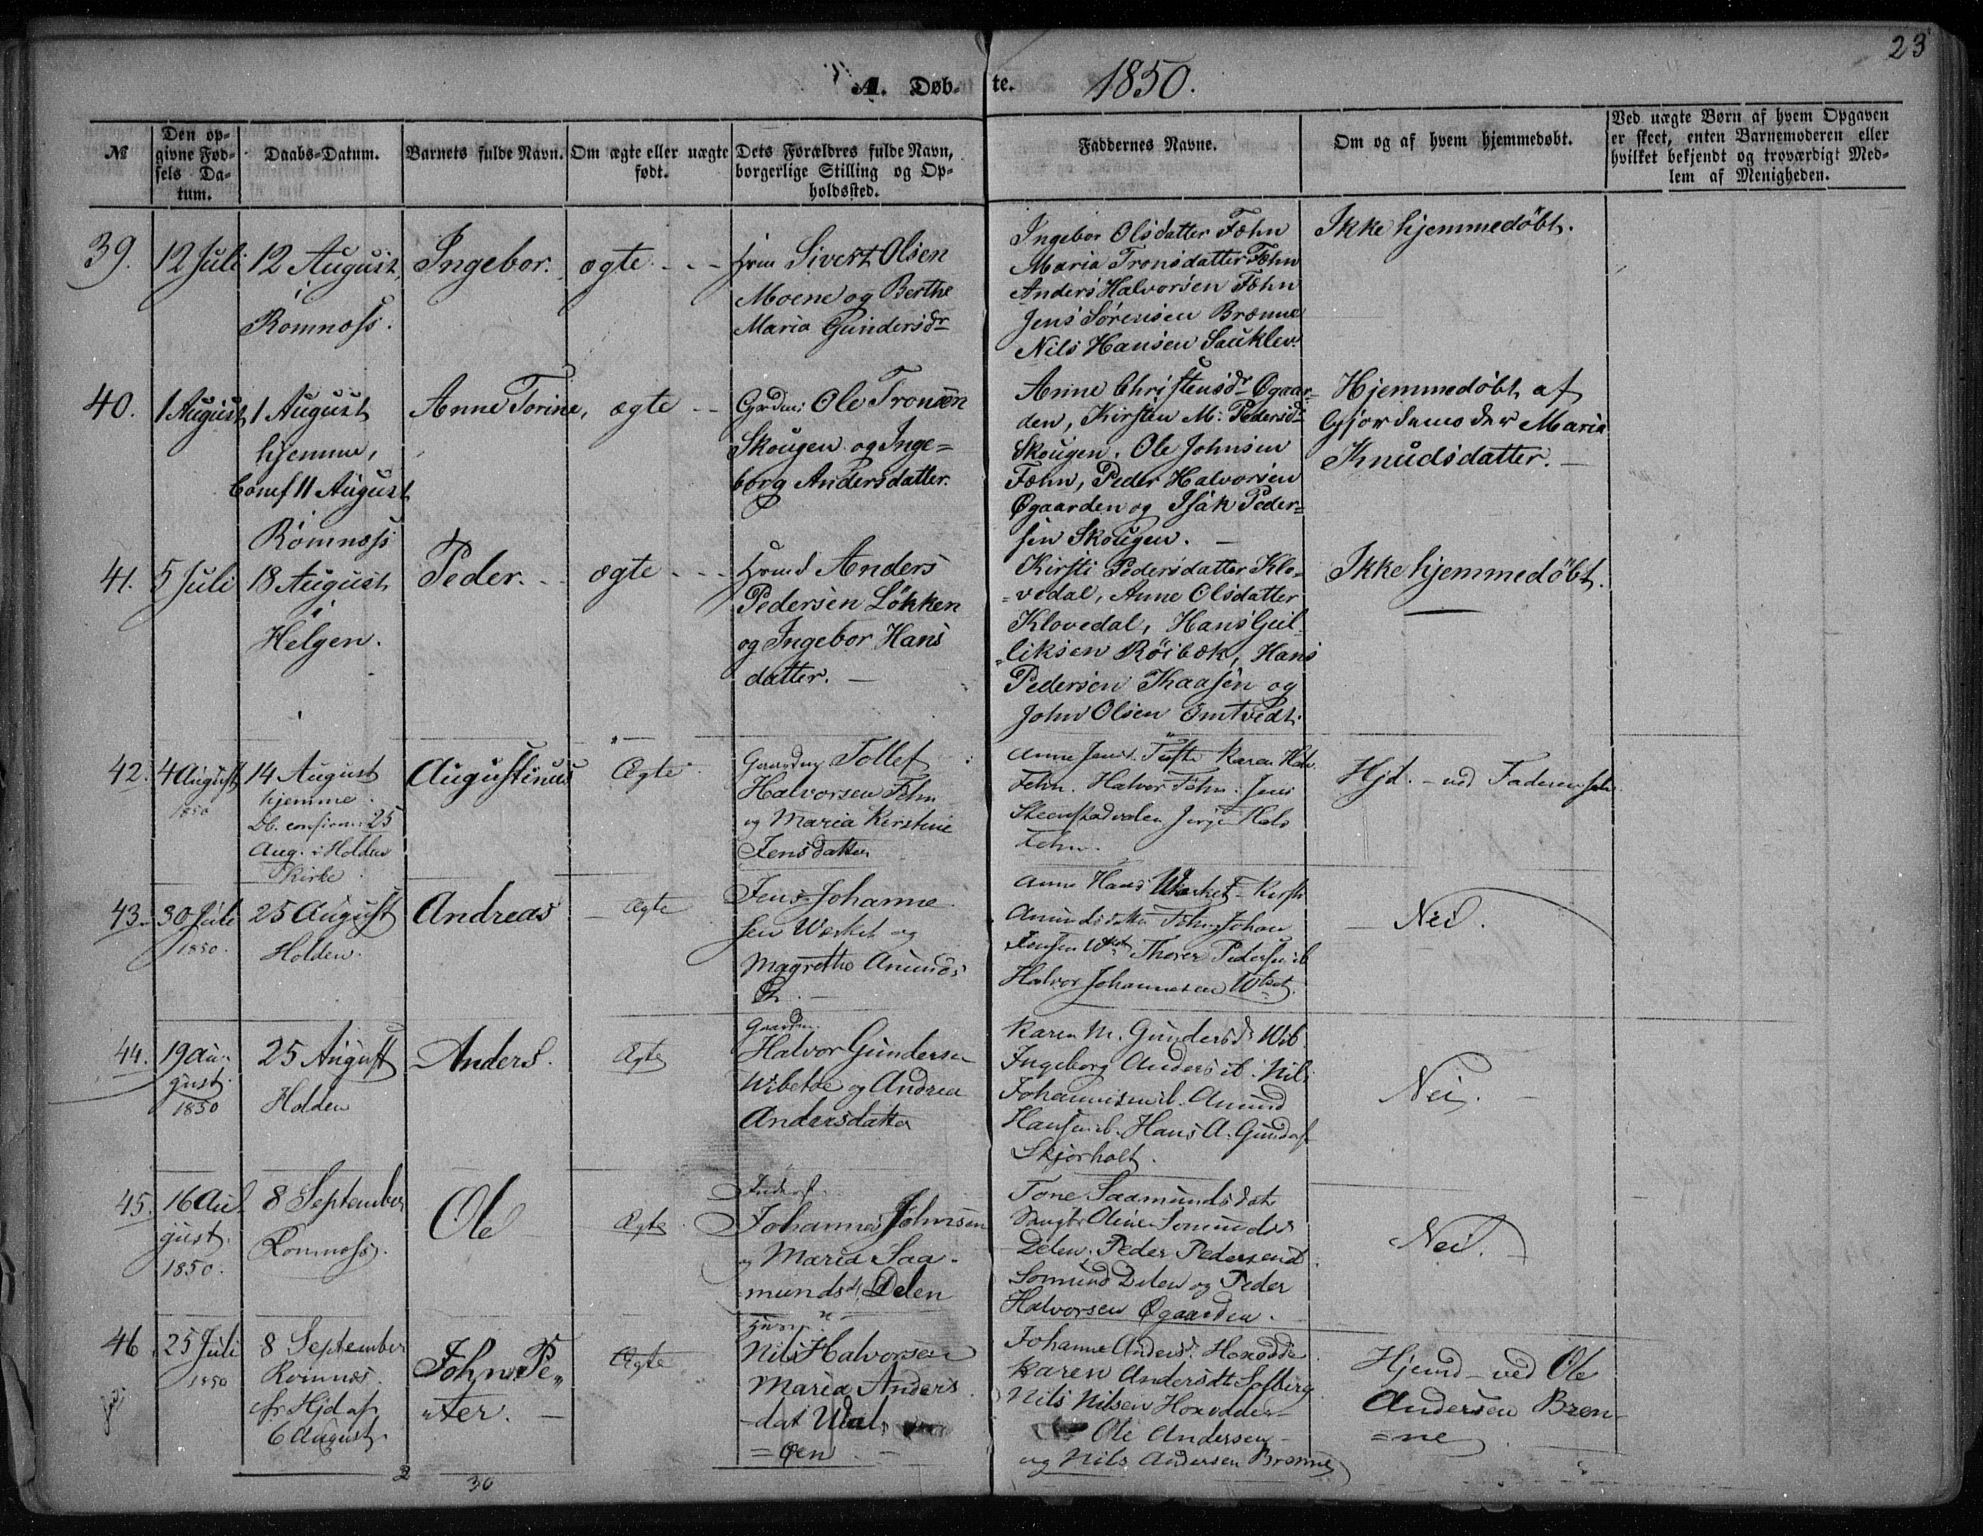 23
A. Døb- te. 1850.
№
Den op-
givne Fød-
sels Da-
tum.
Daabs-Datum.
Barnets fulde Navn.
Om ægte eller uægte
født.
Dets Forældres fulde Navn,
borgerlige Stilling og Op-
holdssted.
Faddernes Navne.
Om og af hvem hjemmedøbt.
Ved uægte Børn af hvem Opgaven
er skeet, enten Barnemoderen eller
hvilket bekjendt og troværdigt Med-
lem af Menigheden.
39.
12 Juli
12 August
i
Romnæss.
Ingebor.
ægte
Sivert Olsen
Moene og Berthe
Maria Gundersdr
Ingebor Olsdatter Fæhn
Maria Tronsdatter Fæhn
Anders Halvorsen Fæhn
Jens Sørensen Brænne
Nils Hansen Sauklev.
Ikke hjemmedøbt.
40.
1 August
1 August
hjemme,
Conf 11 August
i
Romnæss
Anne Torine,
ægte
Ole Tronsen
Skougen og Inge=
borg Andersdatter.
Anne Christensdr Øgaar-
den, Kirsten M: Pedersdr
Skougen, Ole Johnsen
Fæhn, Peder Halvorsen
Øgaarden og Isak Peder=
sen Skougen.
Hjemmedøbt af
Gjordemoder Maria
Knudsdatter.
41.
5 Juli
18 August
i
Helgen.
Peder.
ægte
Hmd Anders
Pedersen Løkken
og Ingebor Hans
datter.
Kirsti Pedersdatter Klo=
=vedal, Anne Olsdatter
Klovedal, Hans Gul-
liksen Röibæk, Hans
Pedersen Kaasen og
John Olsen Omtvedt.
Ikke hjemmedøbt.
42.
4 August
1850
14 August
hjemme.
Db. confirm. 25
Aug. i Holden
Kirke
Augustinus
Ægte
Tollef
Halvorsen Fehn
og Maria Kirstine
Jensdatter
Anne Jensd. Tufte Karen Halv.
Fehn. Halvor Fehn. Jens
Steenstadvalen Jørgen Halv
Fehn.
Hjd. - ved Faderen selv.
43.
30 Juli
1850.
25 August
Holden.
Andreas
Ægte
Jens Johanne
sen Værket og
Magrethe Amunds
Dr.
Anne Hans Værket - Kirsti
Amundsdatter Fehn Johan
Jensen Thorer Pedersen ib
Halvor Johannesen
Nei.
44.
19 Au-
gust.
1850
25 August
Holden
Anders.
Ægte
Gaardm.
Halvor Gundersen
Vibetoe og Andrea
Andersdatter
Karen M. Gundersd. Vib.
Ingeborg Anders ib. Nils
Johannesen ib. Amund
Hansen ib. Hans A. Gunders
Skjorholt.
Nei.
45.
16 Au
gust.
1850.
8 September
Romnæss.
Ole
Ægte
Johannes Johnsen
og Maria Saa-
mundsd. Delen
Tone Saamundsdat
Oline Somunds
Delen. Peder Pedersen
Somund Delen og Peder
Halvorsen Øgaarden.
Nei.
46
25 Juli
1850
8 September
Romnæs.
fr Hjd af
6 August.
John Pe„
„ter.
Ægte
Nils Halvorsen
Maria Anders
dat Udal
=øen
Johanne Andersd. Hoxodde
Karen Andersdt Solberg
Nils Nilsen Hoxodden
Ole Andersen
og Nils Andersen Brænne
Hjemd - ved Ole
Andersen Bren-
=ne
2
30